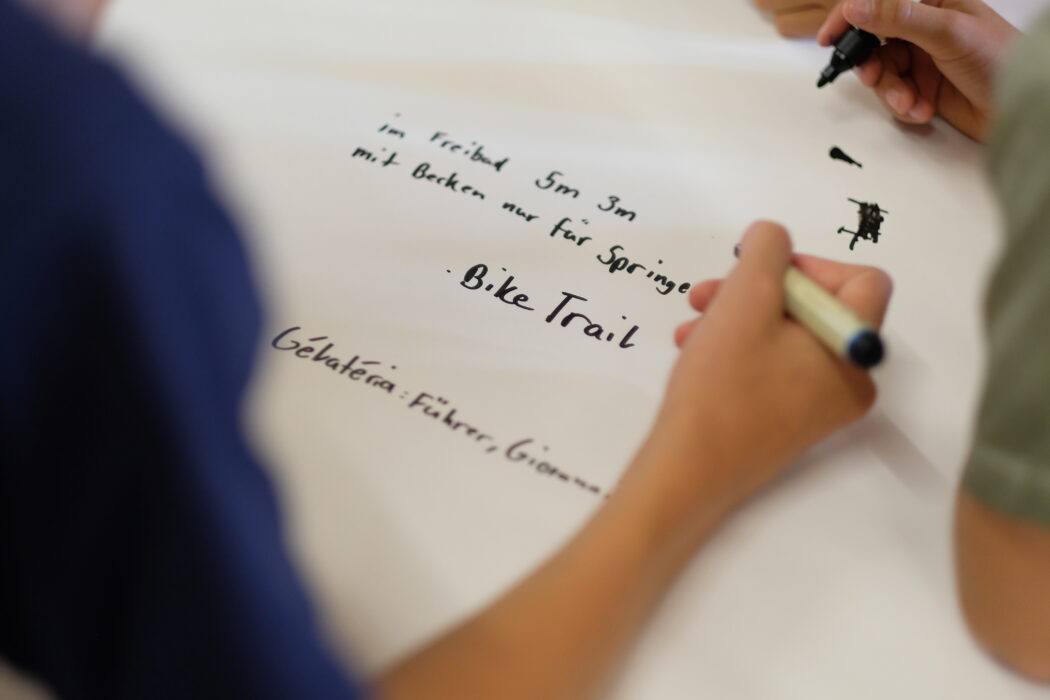 im Freibad 5m 3m
mit Becken nur für Springe
Bike Trail
Gélatéria: Führer,